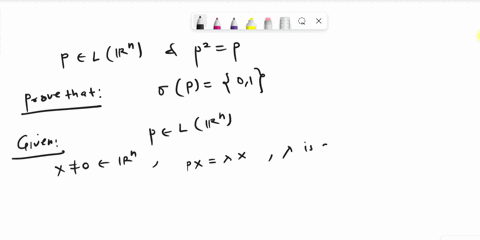 p ∈ L (ℝⁿ) & p² = p
Prove that: σ (p) = {0,1}
Given: p ∈ L (ℝⁿ)
x ≠ 0 ∈ ℝⁿ, px = λx, λ is